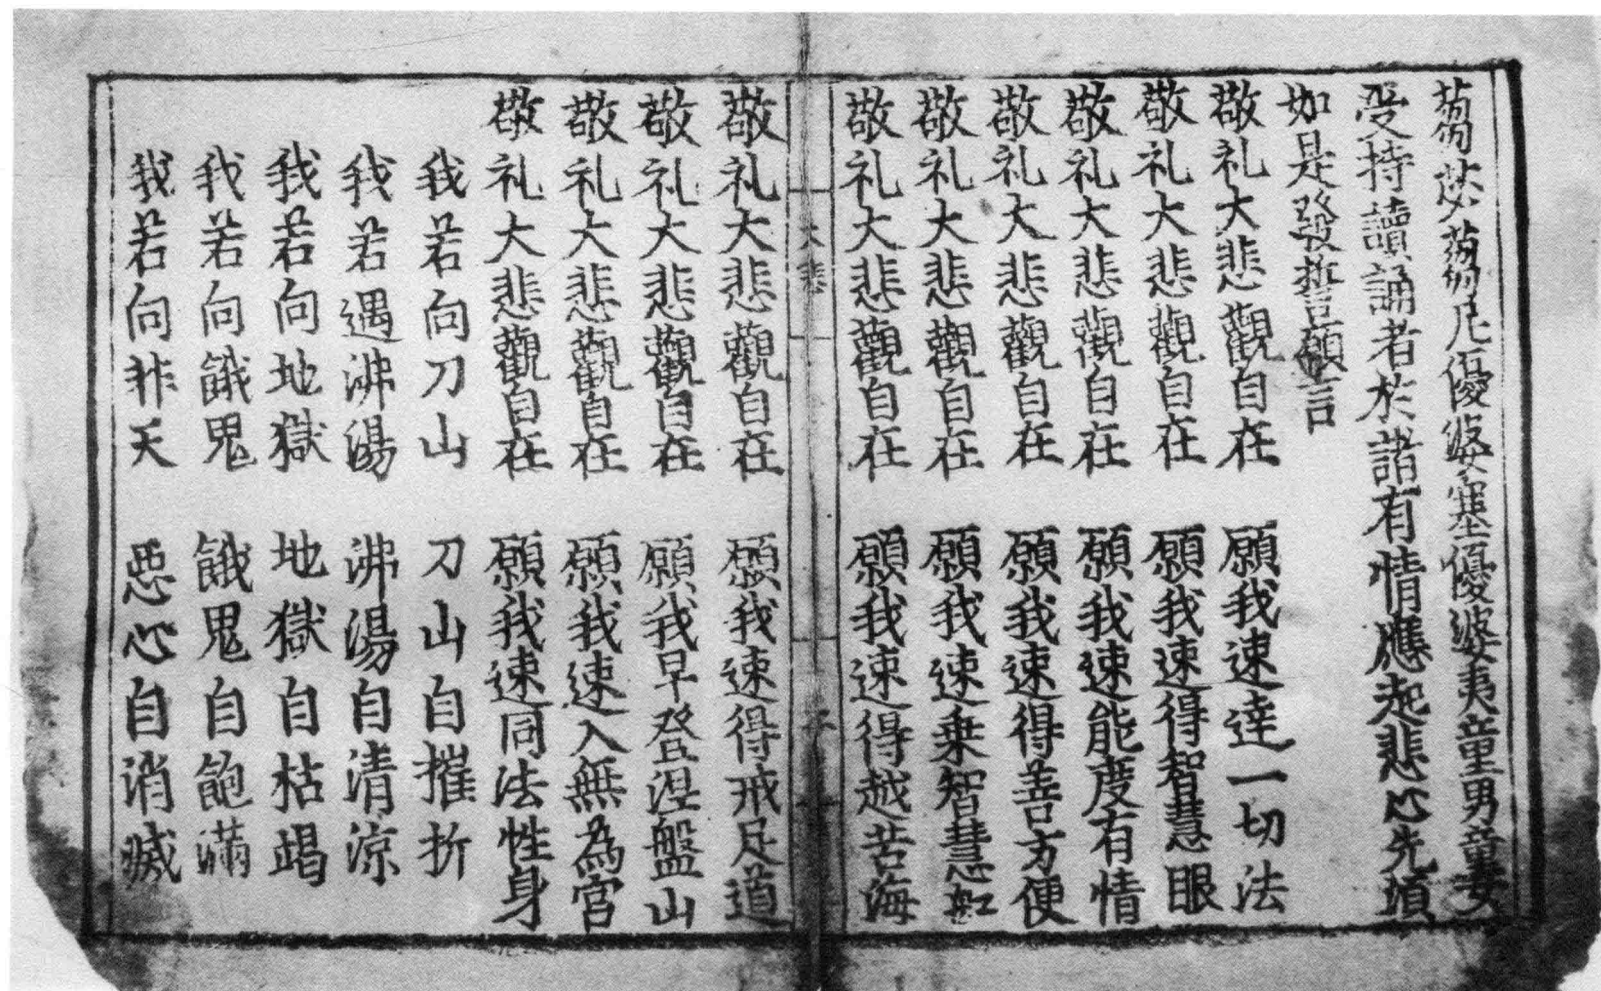 蒭苾蒭尼優婆塞優婆夷童男童女
受持讀誦者於諸有情應起悲心先須
如是發誓願言
敬礼大悲觀自在 願我速達一切法
敬礼大悲觀自在 願我速得智慧眼
敬礼大悲觀自在 願我速能度有情
敬礼大悲觀自在 願我速得善方便
敬礼大悲觀自在 願我速乗智慧舡
敬礼大悲觀自在 願我速得越苦海
大悲
敬礼大悲觀自在 願我速得戒足道
敬礼大悲觀自在 願我早登涅盤山
敬礼大悲觀自在 願我速入無為宮
敬礼大悲觀自在 願我速同法性身
我若向刀山 刀山自摧折
我若遇沸湯 沸湯自清涼
我若向地獄 地獄自枯竭
我若向餓鬼 餓鬼自飽滿
我若向非天 惡心自消滅